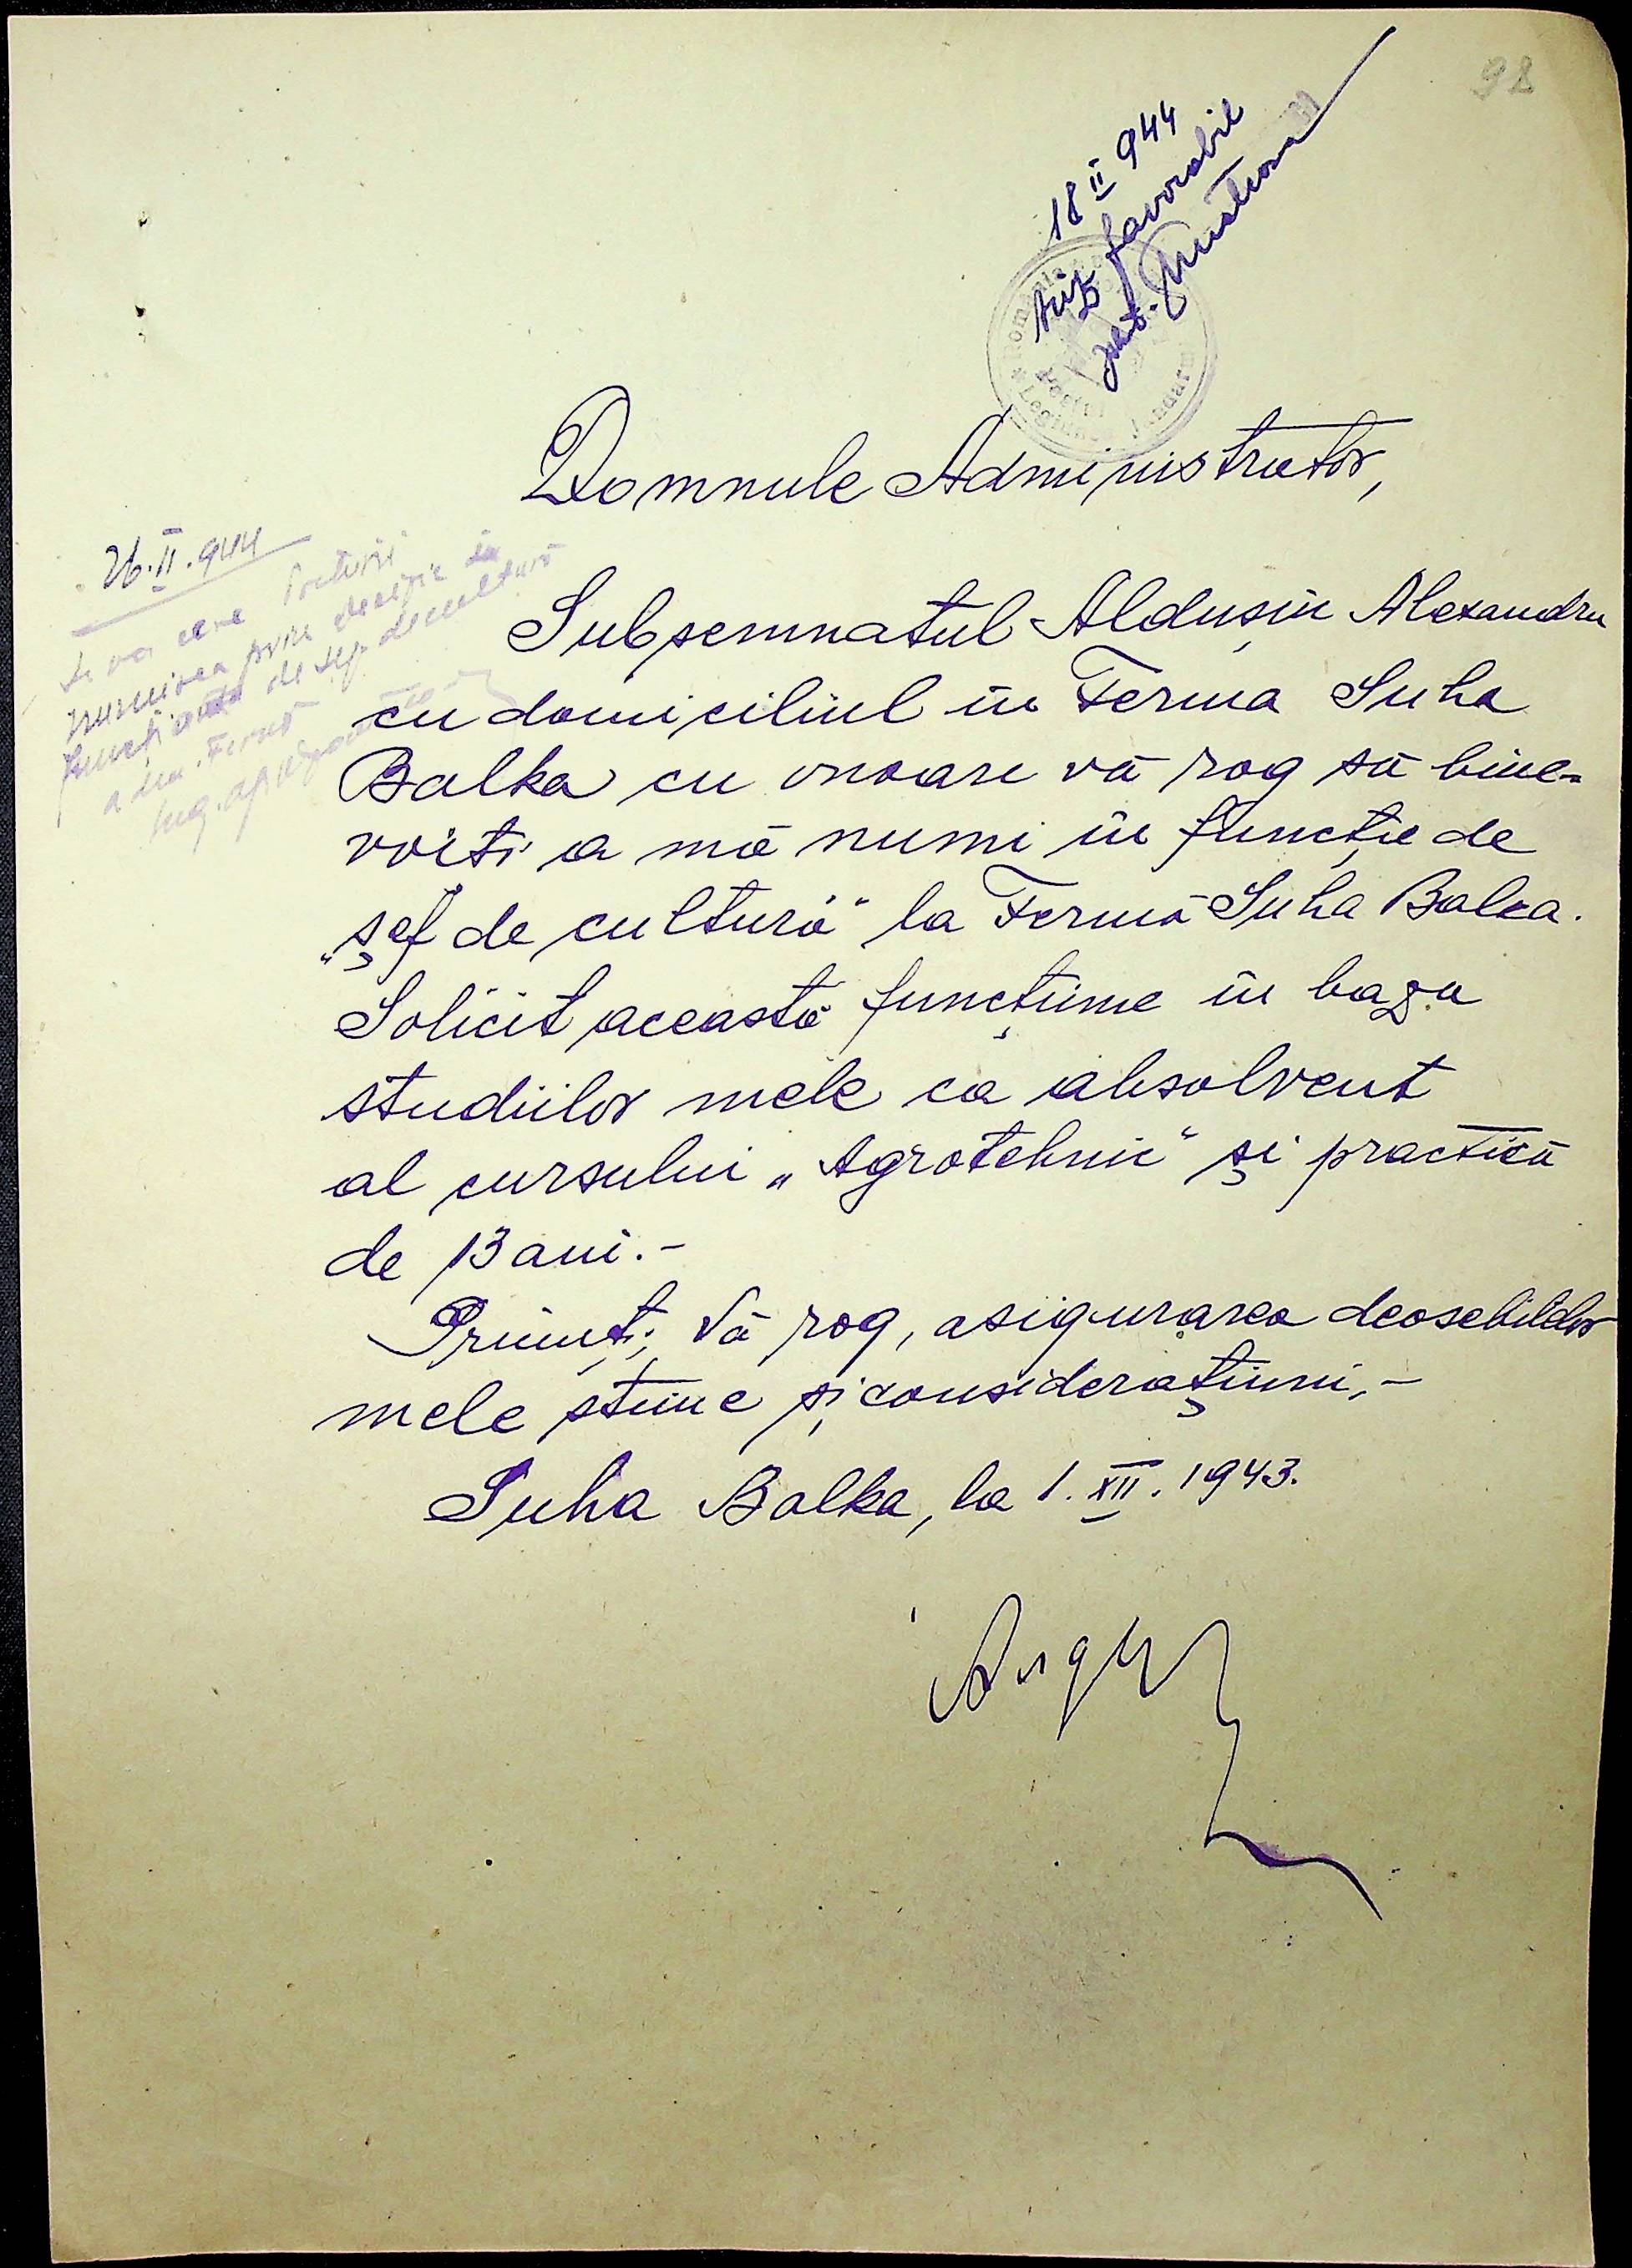 98
18 II 944
Aviz favorabil
Domnule Administrator,
26.II.944
Se va cere Preturii
numirea prin decizie în
de șef de cultură
Subsemnatul Aldușin Alexandru
cu domiciliul în Ferma Suha
Balka cu onoare vă rog să bine-
voiți a mă numi în funcție de
„șef de cultură" la Fermă Suha Balca.
Solicit această funcțiune în baza
studiilor mele ca absolvent
al cursului „Agrotehnic" și practică
de 13 ani.-
Primiți, Vă rog, asigurarea deosebitelor
mele stime și considerațiuni,-
Suha Balka, la 1.XII.1943.